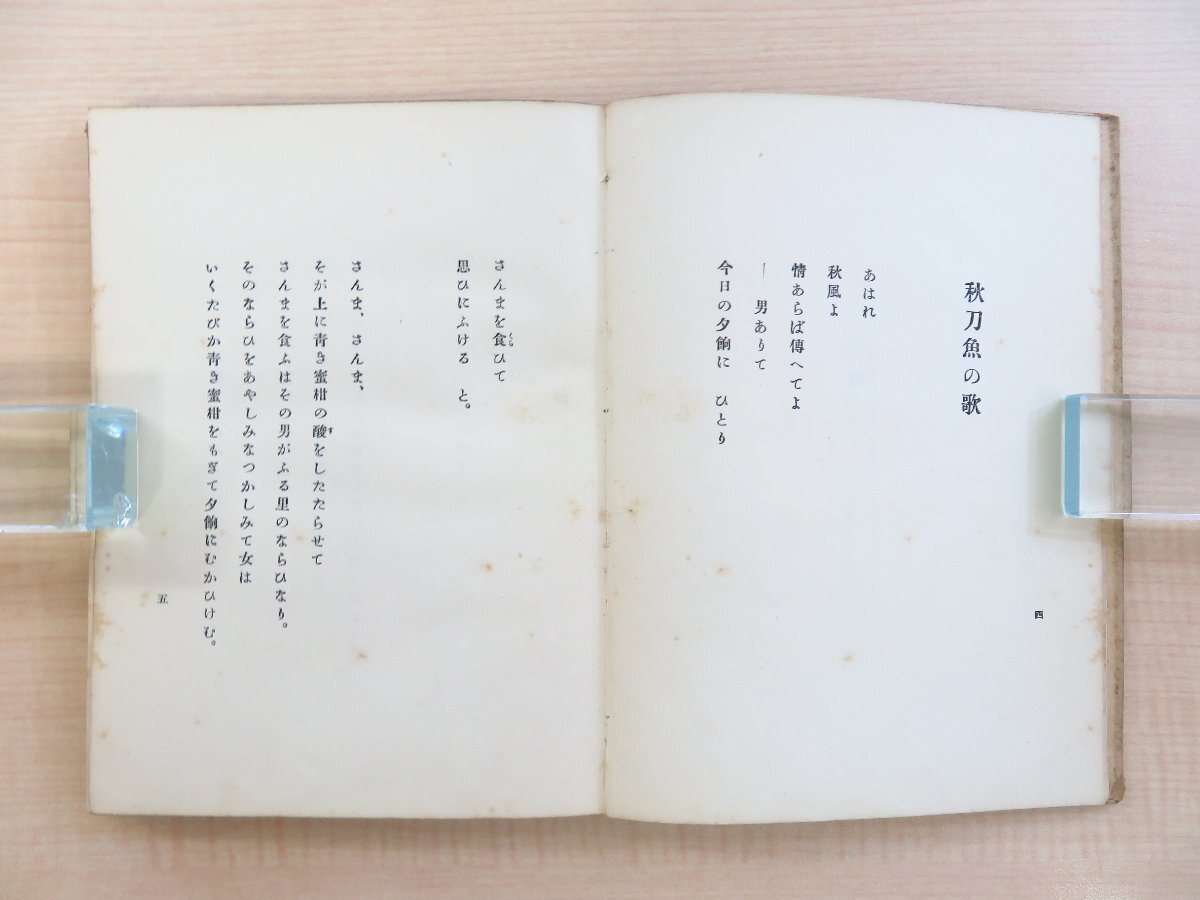 秋刀魚の歌
あはれ
秋風よ
情あらば傳へてよ
― 男ありて
今日の夕餉に ひとり
四
さんまを食ひて
思ひにふける と。
さんま、さんま、
そが上に青き蜜柑の酸をしたたらせて
さんまを食ふはその男がふる里のならひなり。
そのならひをあやしみなつかしみて女は
いくたびか青き蜜柑をもぎて夕餉にむかひけむ。
五